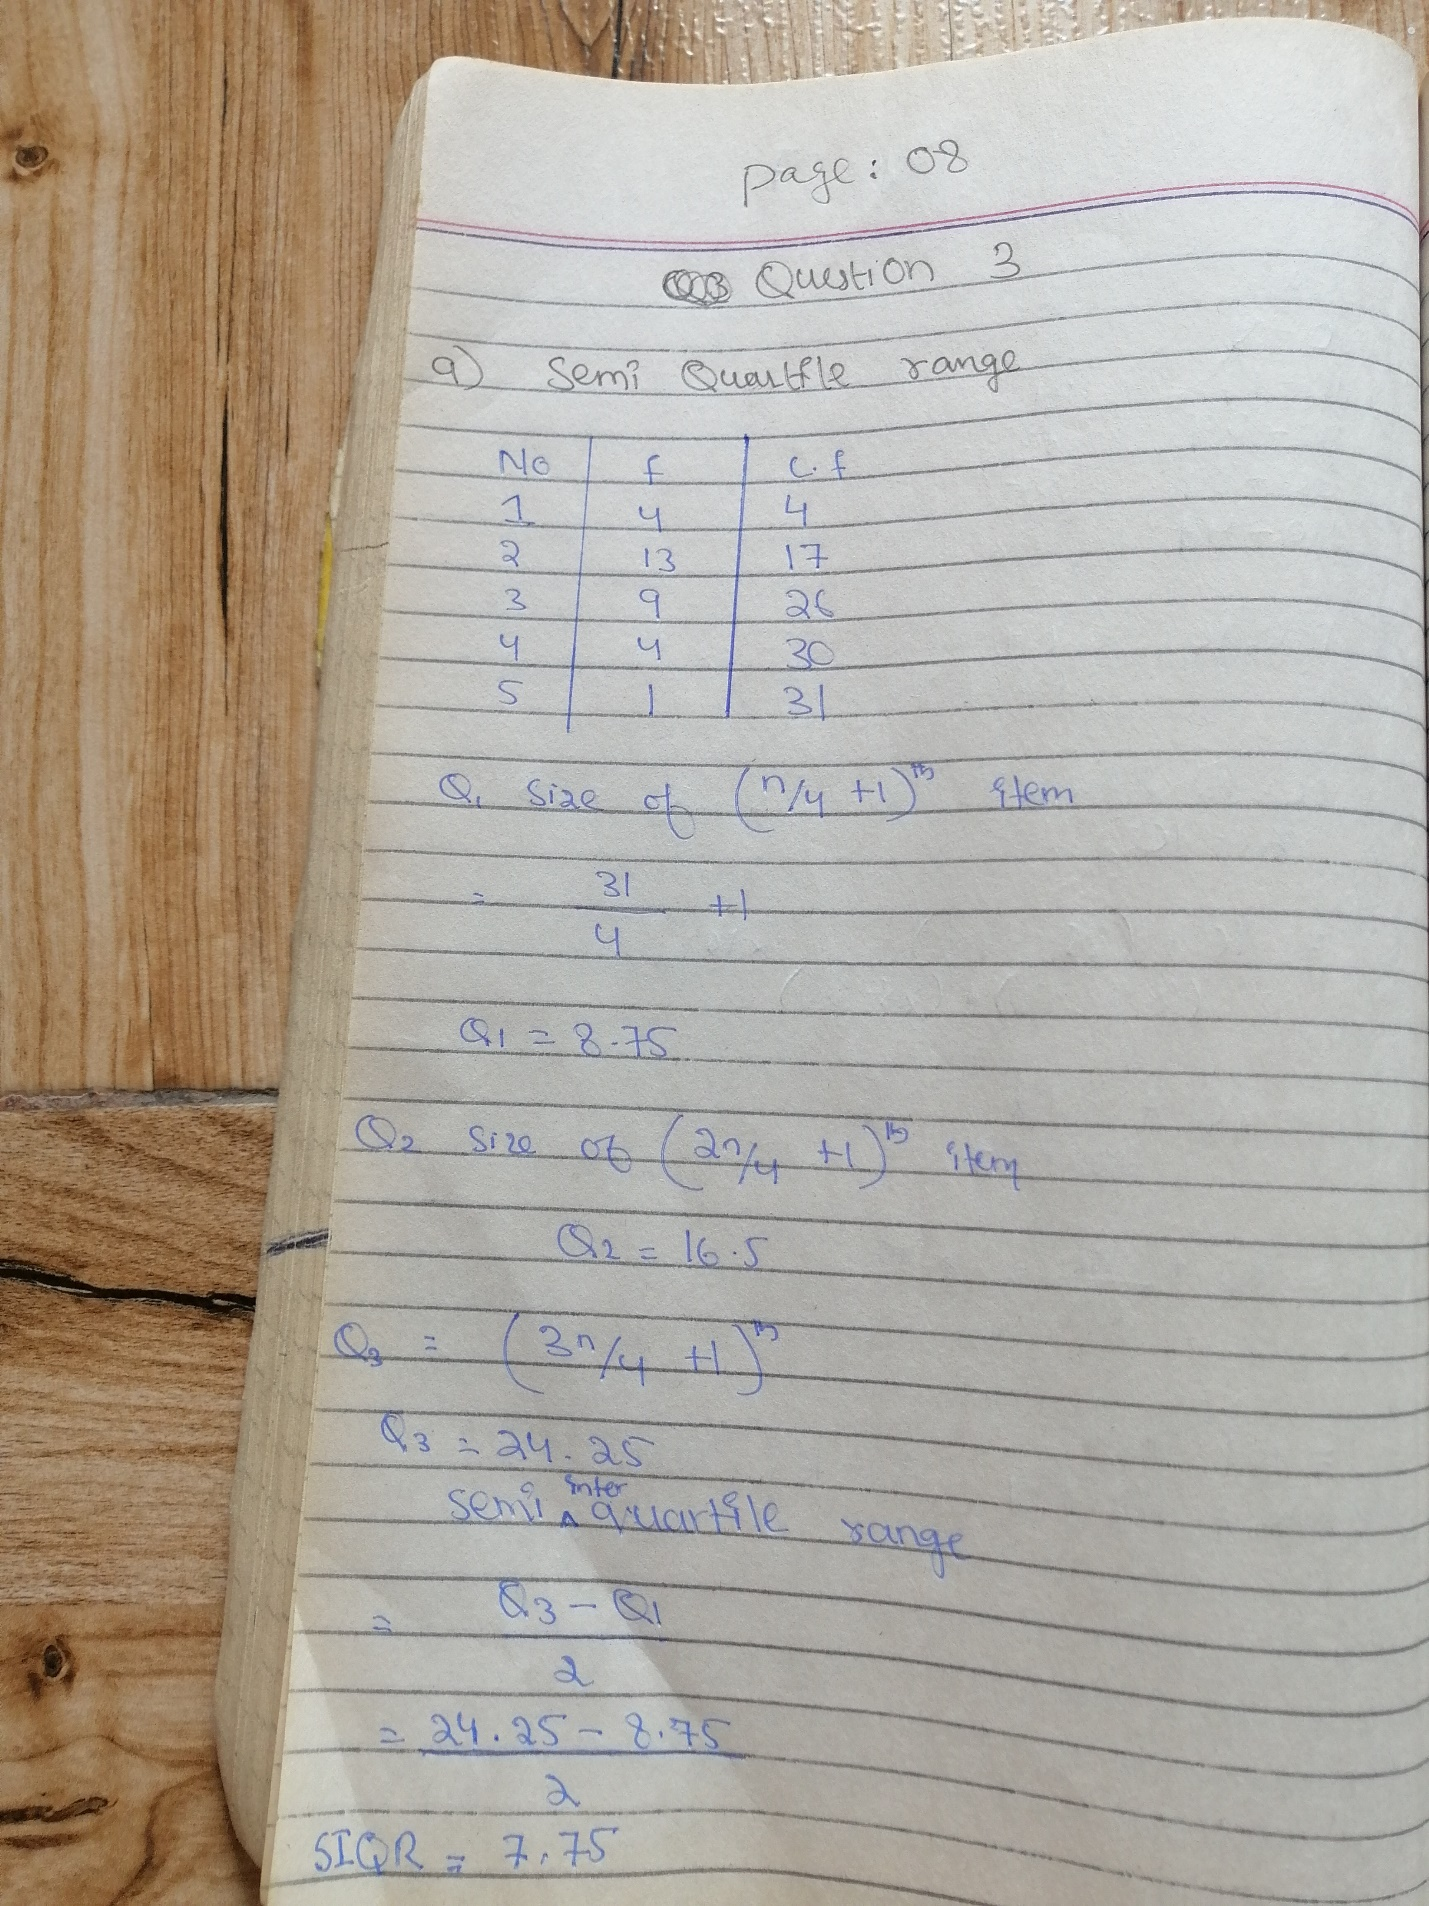 page: 08
Question 3
a) Semi Quartile range
No f c.f
1 4 4
2 13 17
3 9 26
4 4 30
5 1 31
Q1 size of (n/4 +1)th item
= 31/4 +1
Q1 = 8.75
Q2 size of (2n/4 +1)th item
Q2 = 16.5
Q3 = (3n/4 +1)th
Q3 = 24.25
semi inter quartile range
= Q3 - Q1
2
= 24.25 - 8.75
2
SIQR = 7.75